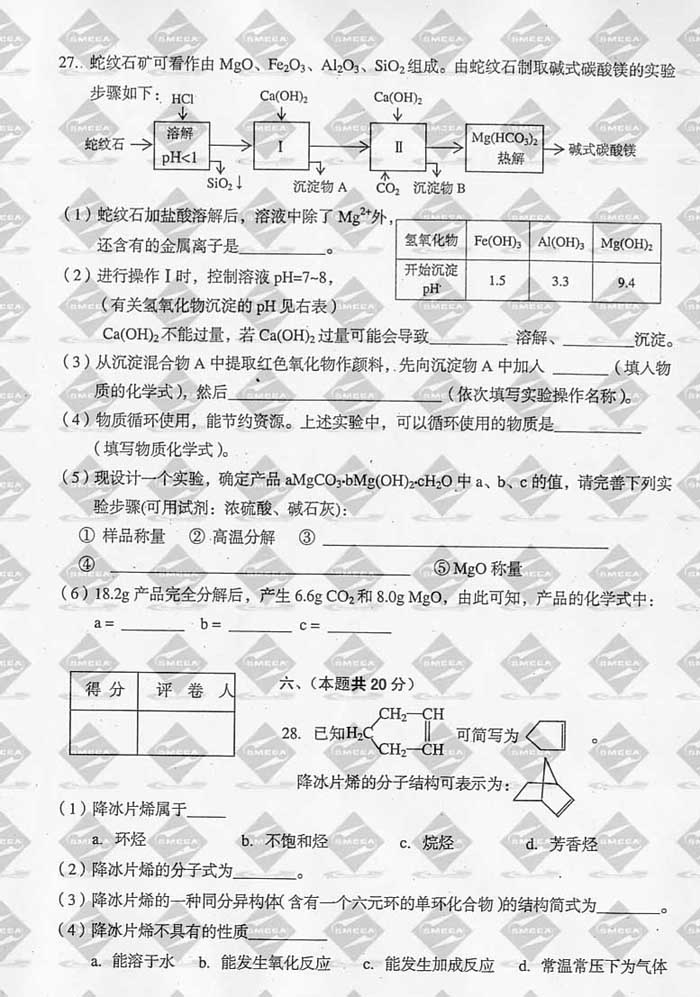 27. 蛇纹石矿可看作由 MgO、Fe₂O₃、Al₂O₃、SiO₂ 组成。由蛇纹石制取碱式碳酸镁的实验
步骤如下:
HCl Ca(OH)₂ Ca(OH)₂
蛇纹石 溶解 pH<1 Ⅰ Ⅱ Mg(HCO₃)₂ 热解 碱式碳酸镁
SiO₂↓ 沉淀物 A CO₂ 沉淀物 B
(1) 蛇纹石加盐酸溶解后,溶液中除了 Mg²⁺外,
还含有的金属离子是________。
氢氧化物 Fe(OH)₃ Al(OH)₃ Mg(OH)₂
开始沉淀 pH 1.5 3.3 9.4
(2) 进行操作Ⅰ时,控制溶液 pH=7~8,
(有关氢氧化物沉淀的 pH 见右表)
Ca(OH)₂ 不能过量,若 Ca(OH)₂ 过量可能会导致________ 溶解、________沉淀。
(3) 从沉淀混合物 A 中提取红色氧化物作颜料,先向沉淀物 A 中加人 ______ (填人物
质的化学式),然后______________________(依次填写实验操作名称)。
(4) 物质循环使用,能节约资源。上述实验中,可以循环使用的物质是________
(填写物质化学式)。
(5) 现设计一个实验,确定产品 aMgCO₃·bMg(OH)₂·cH₂O 中 a、b、c 的值,请完善下列实
验步骤(可用试剂:浓硫酸、碱石灰):
① 样品称量 ② 高温分解 ③ ______________________________
④ ______________________________ ⑤ MgO 称量
(6) 18.2g 产品完全分解后,产生 6.6g CO₂ 和 8.0g MgO,由此可知,产品的化学式中:
a = ______ b = ______ c = ______
得 分 评 卷 人
六、(本题共 20 分)
28. 已知 H₂C CH₂—CH CH₂—CH 可简写为 。
降冰片烯的分子结构可表示为:
(1) 降冰片烯属于____
a. 环烃 b. 不饱和烃 c. 烷烃 d. 芳香烃
(2) 降冰片烯的分子式为______。
(3) 降冰片烯的一种同分异构体(含有一个六元环的单环化合物)的结构简式为______。
(4) 降冰片烯不具有的性质________
a. 能溶于水 b. 能发生氧化反应 c. 能发生加成反应 d. 常温常压下为气体